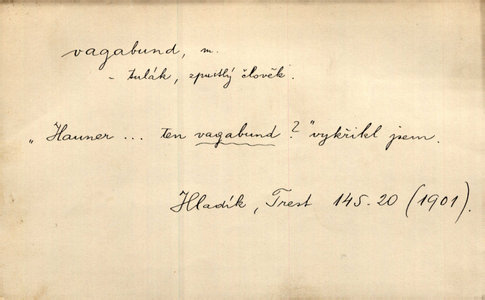 vagabund, m.
- tulák, zpustlý člověk.
„Hauner ... ten vagabund?" vykřikl jsem.
Hladík, Trest 145-20 (1901).